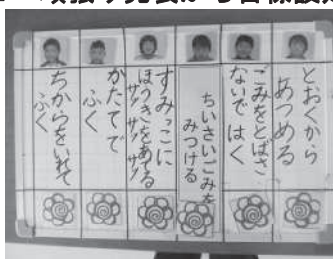 とおくから
あつめる
ごみをとばさ
ないで はく
ちいさいごみを
みつける
すみっこに
ほうきをあてる
サッ!サッ!サッ!
かたてで
ふく
ちからをいれて
ふく